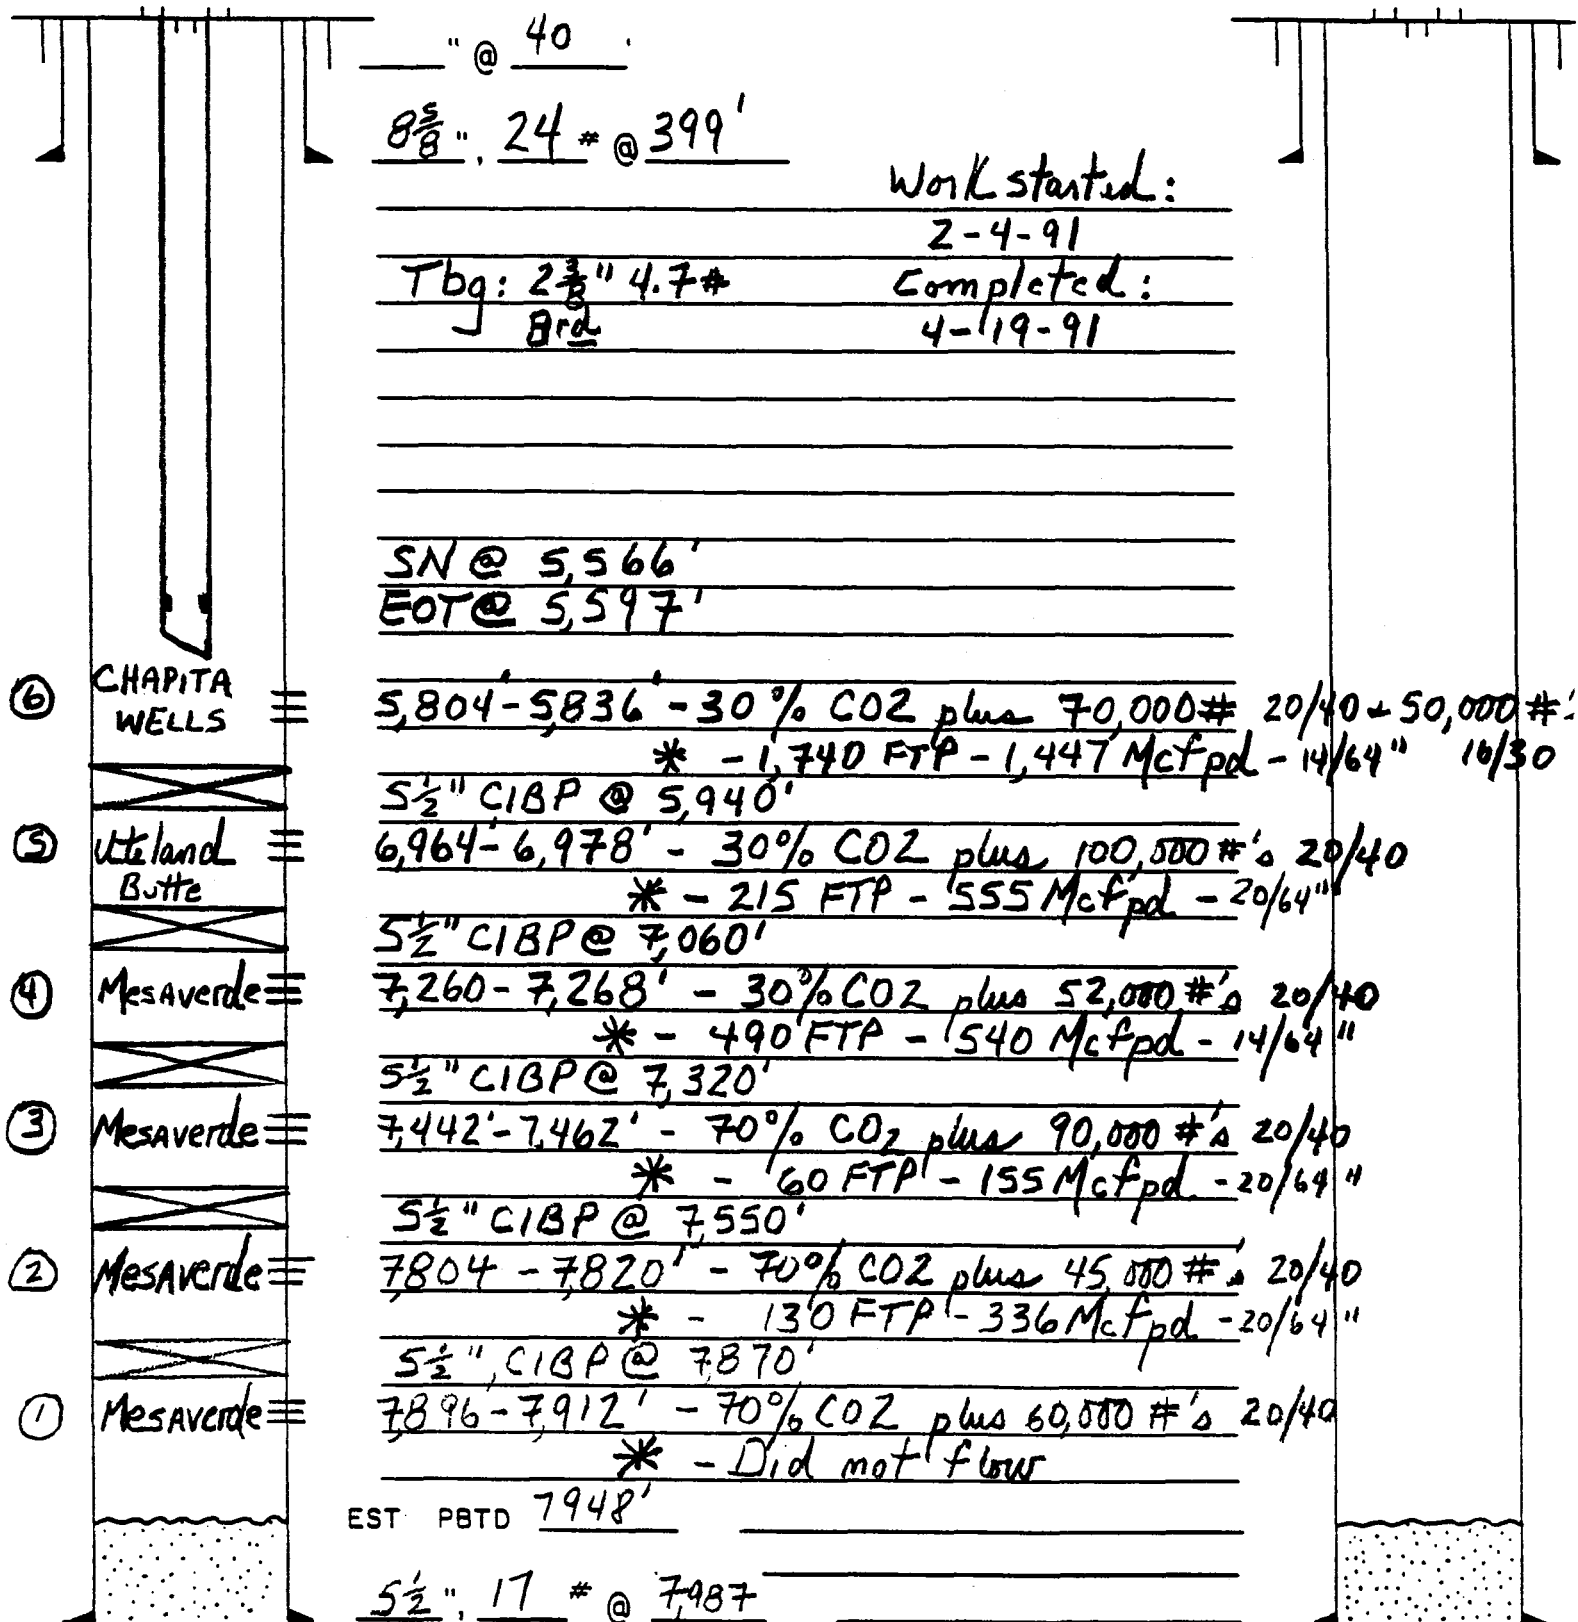 " @ 40 '
8 5/8 ", 24 # @ 399'
Work started:
2-4-91
Tbg: 2 3/8" 4.7# Completed:
8rd 4-19-91
SN @ 5,566'
EOT @ 5,597'
⑥ CHAPITA WELLS 5,804'-5,836' - 30% CO2 plus 70,000# 20/40 + 50,000 #'s
* - 1,740 FTP - 1,447 Mcfpd - 14/64" 16/30
5 1/2" CIBP @ 5,940'
⑤ Uteland Butte 6,964'-6,978' - 30% CO2 plus 100,000 #'s 20/40
* - 215 FTP - 555 Mcfpd - 20/64"
5 1/2" CIBP @ 7,060'
④ Mesaverde 7,260-7,268' - 30% CO2 plus 52,000 #'s 20/40
* - 490 FTP - 540 Mcfpd - 14/64"
5 1/2" CIBP @ 7,320'
③ Mesaverde 7,442'-7,462' - 70% CO2 plus 90,000 #'s 20/40
* - 60 FTP - 155 Mcfpd - 20/64"
5 1/2" CIBP @ 7,550'
② Mesaverde 7,804 - 7,820' - 70% CO2 plus 45,000 #'s 20/40
* - 130 FTP - 336 Mcfpd - 20/64"
5 1/2", CIBP @ 7,870'
① Mesaverde 7,896-7,912' - 70% CO2 plus 60,000 #'s 20/40
* - Did not flow
EST PBTD 7948'
5 1/2", 17 # @ 7,987